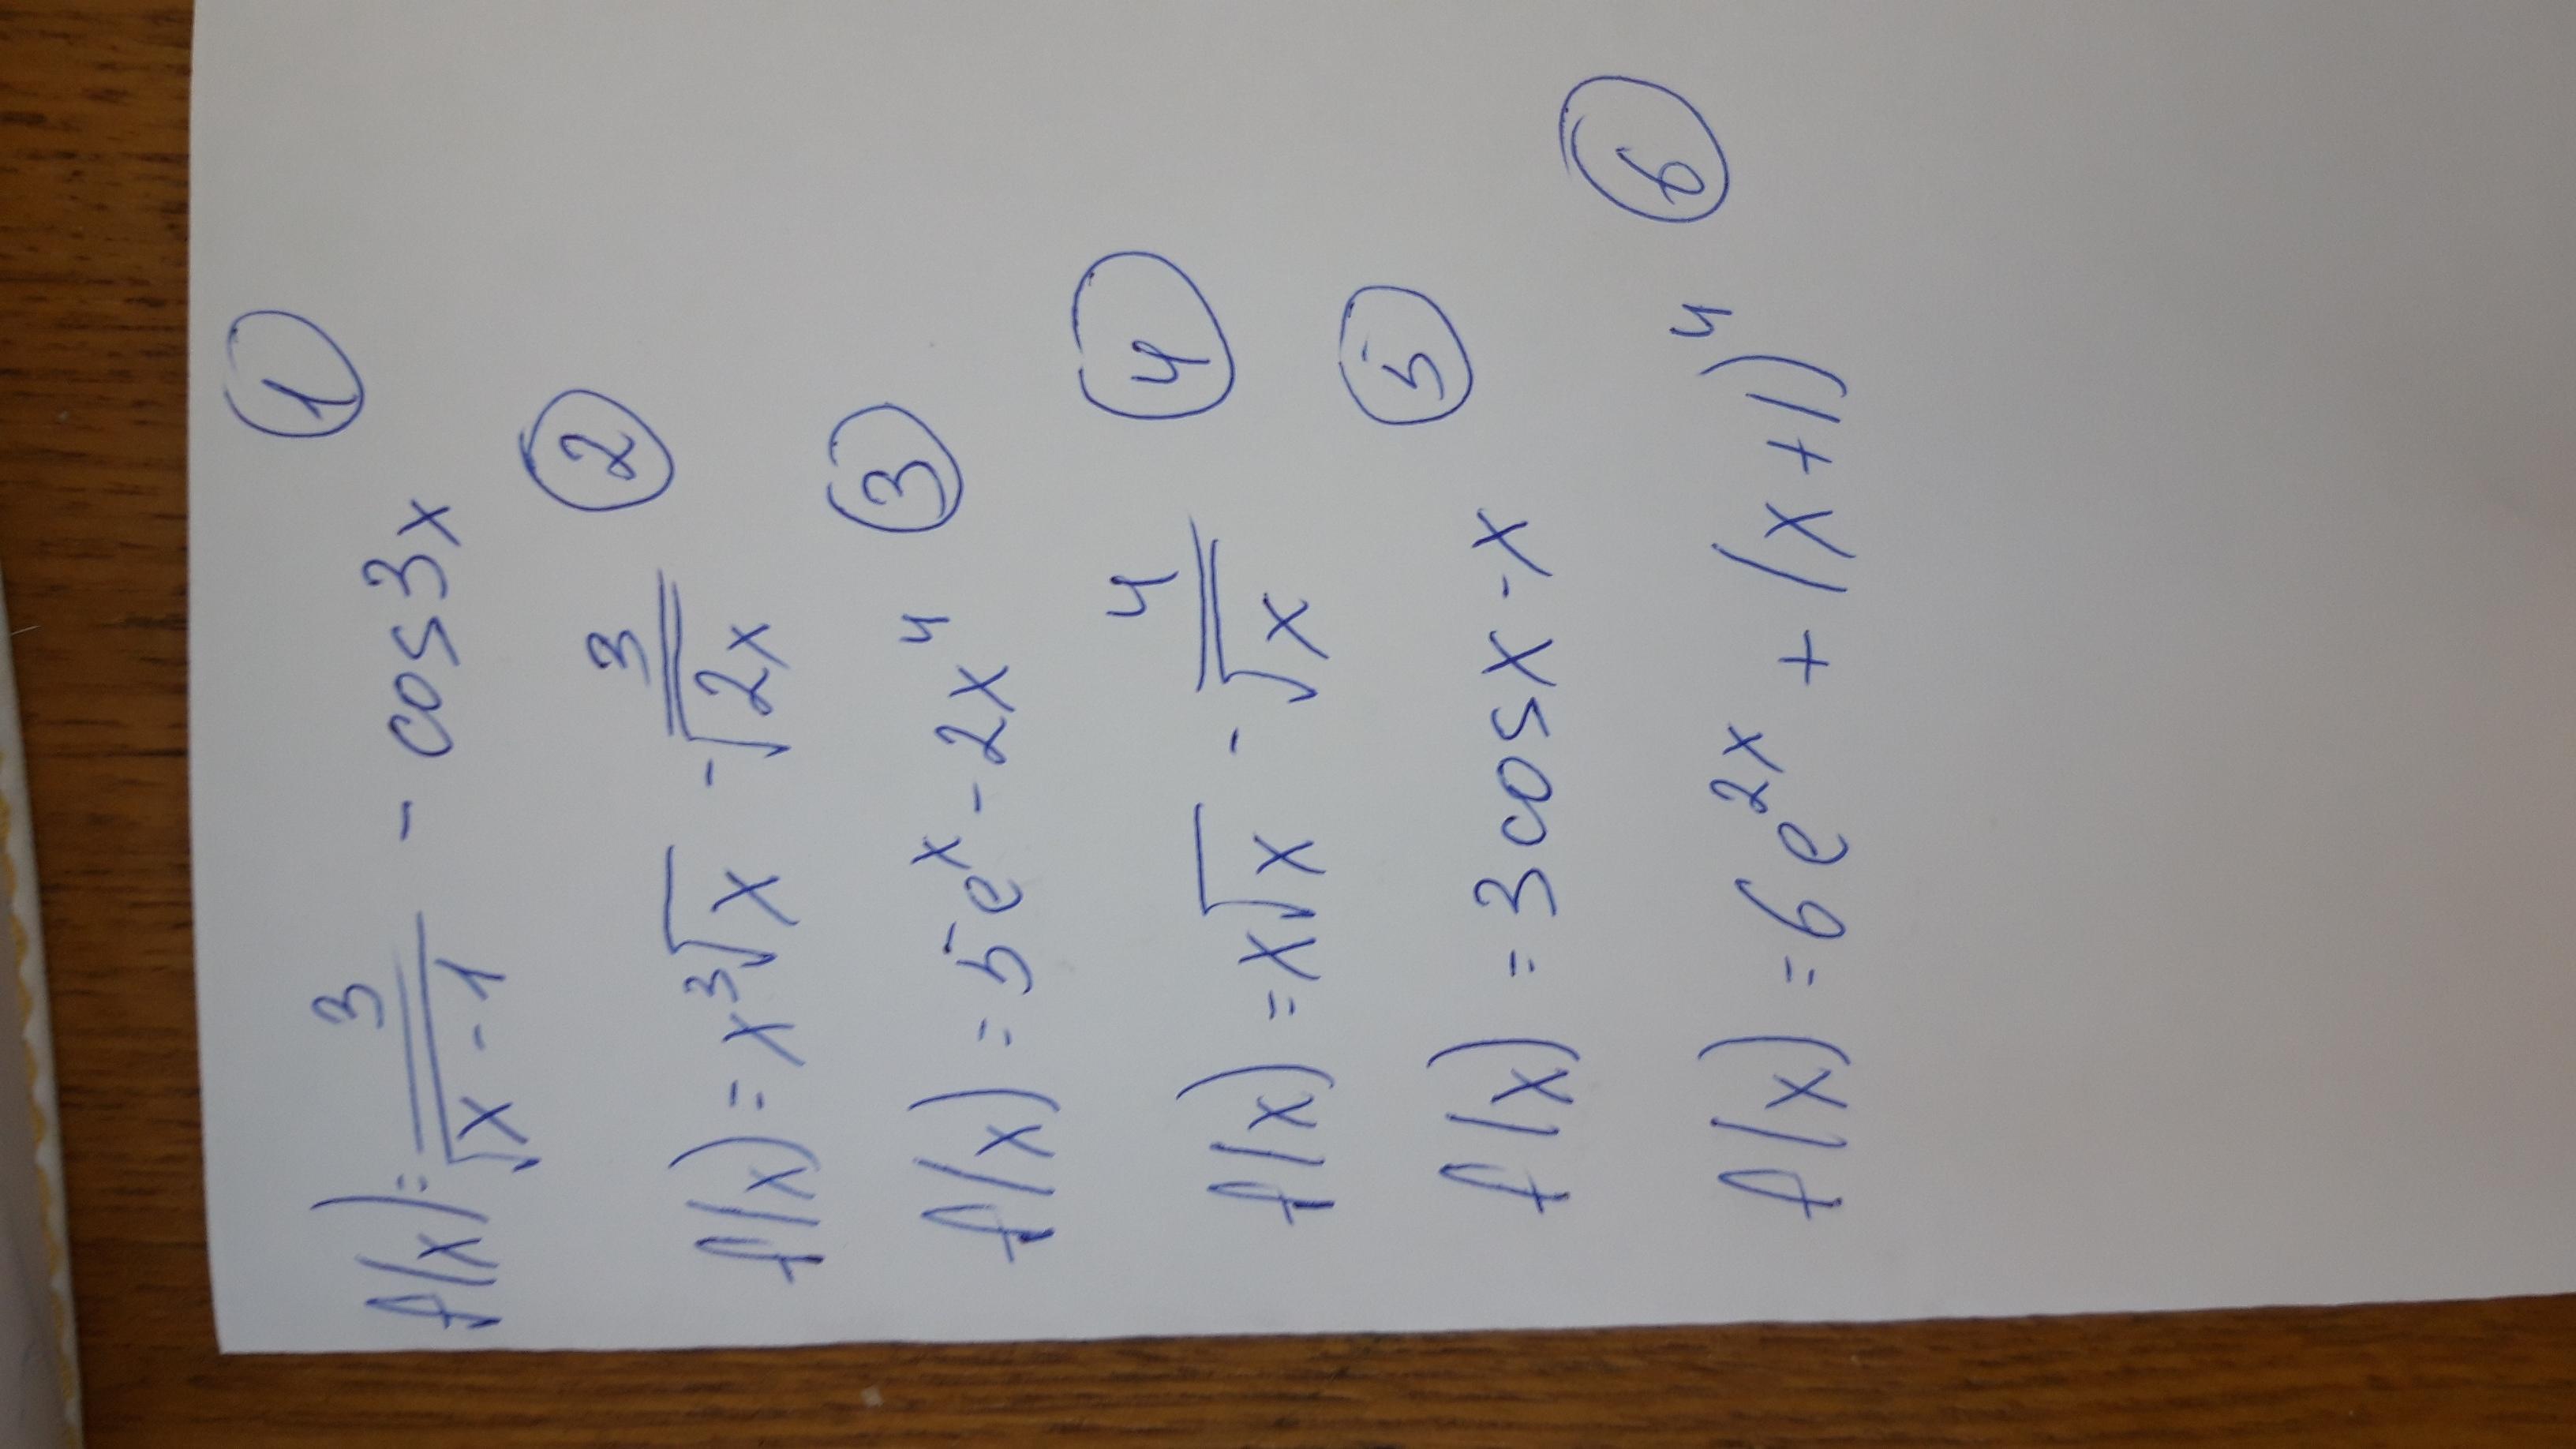 f(x) = 3/√(x-1) - cos3x ①
f(x) = x³√x - 3/√(2x) ②
f(x) = 5eˣ - 2x⁴ ③
f(x) = x√x - 4/√x ④
f(x) = 3cosx - x ⑤
f(x) = 6e²ˣ + (x+1)⁴ ⑥